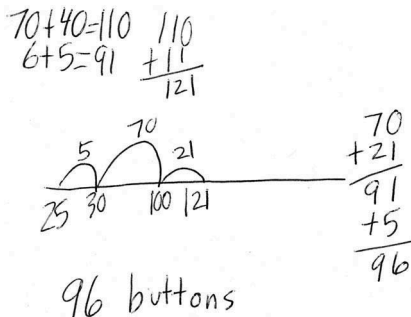 70+40=110
6+5=91
110
+11
121
5
70
21
25
30
100
121
70
+21
91
+5
96
96 buttons